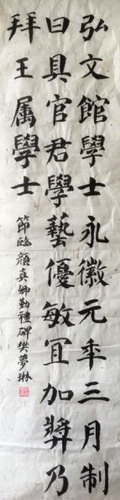 弘文館學士永徽元年三月制
曰具官君學藝優敏宜加獎乃
拜王属學士
節臨顏真卿勤禮碑樊夢琳